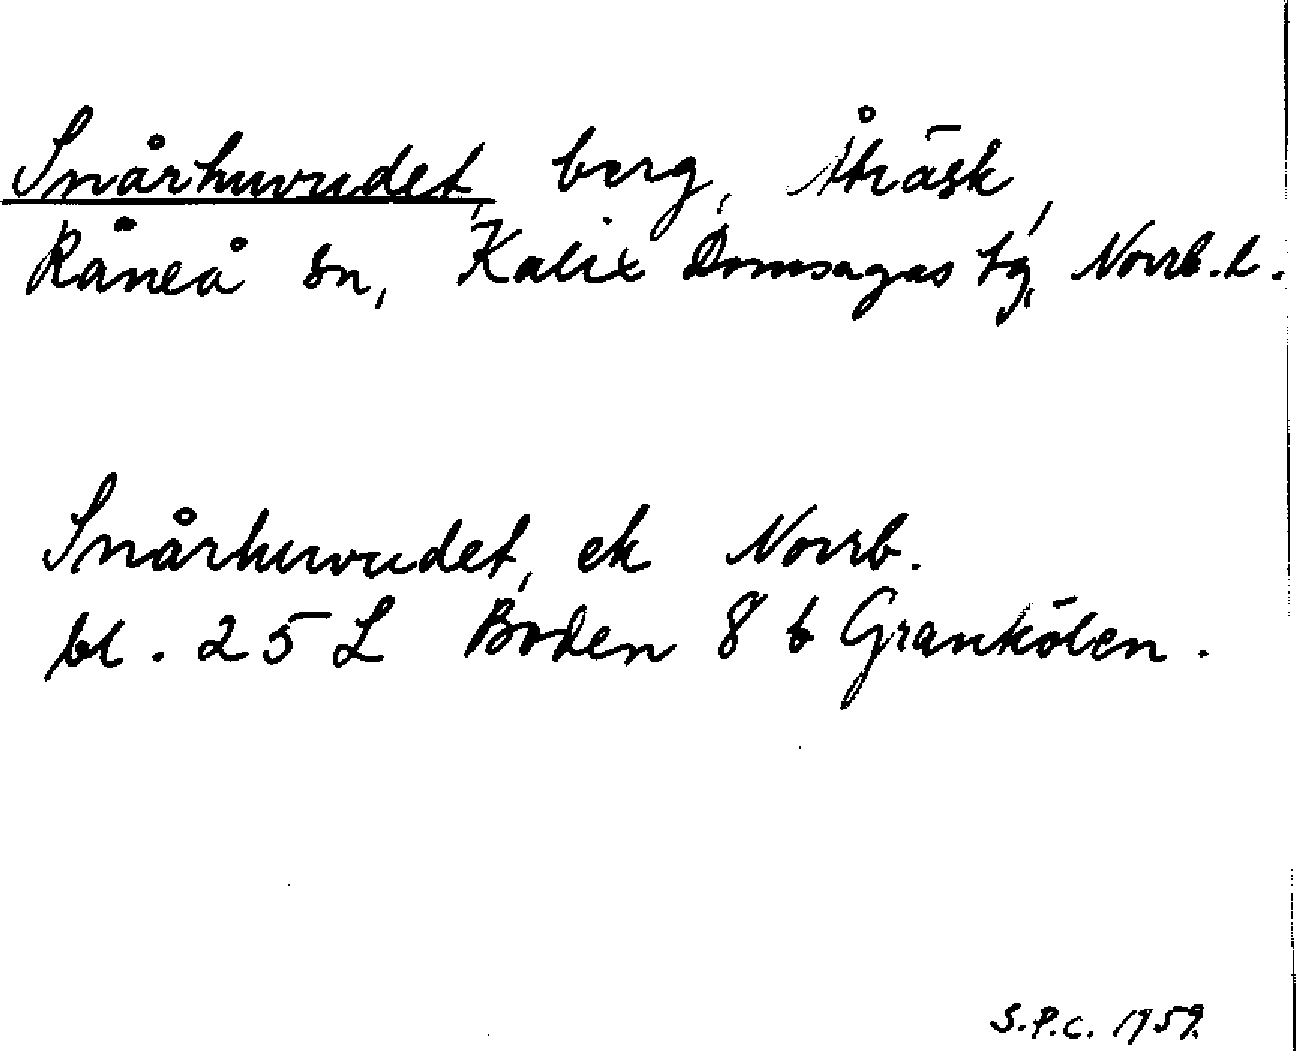 Snårhuvudet, berg, Åträsk,
Råneå sn, Kalix Domsagas tg, Norrb.l.
Snårhuvudet, ek Norrb.
bl. 25 L Boden 8 b Grankölen.
S.P.C. 1959.